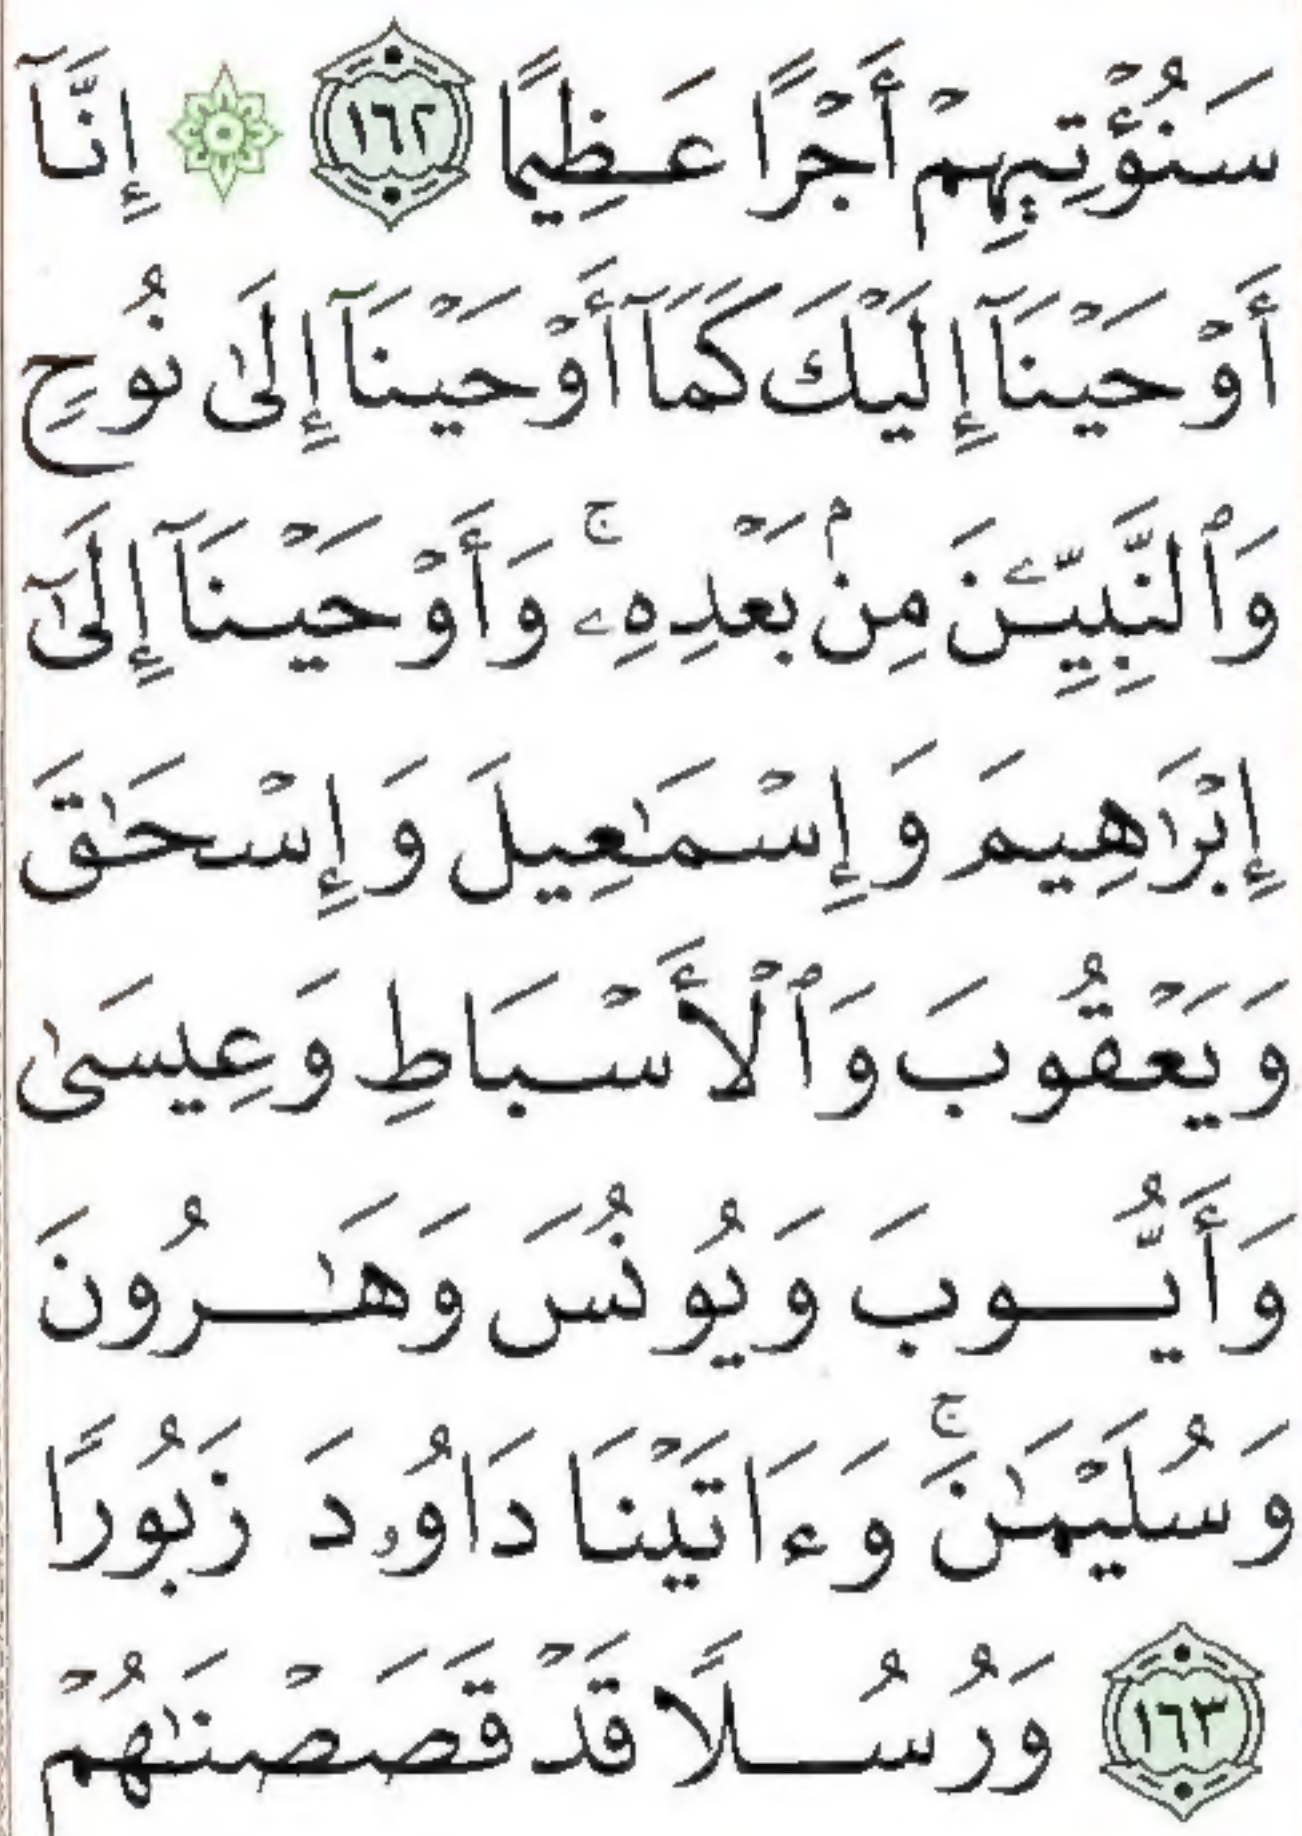 سَنُؤْتِيهِمْ أَجْرًا عَظِيمًا ١٦٢ ۞ إِنَّآ
أَوْحَيْنَآ إِلَيْكَ كَمَآ أَوْحَيْنَآ إِلَىٰ نُوحٍ
وَٱلنَّبِيِّـۧنَ مِنۢ بَعْدِهِۦ ۚ وَأَوْحَيْنَآ إِلَىٰٓ
إِبْرَٰهِيمَ وَإِسْمَٰعِيلَ وَإِسْحَٰقَ
وَيَعْقُوبَ وَٱلْأَسْبَاطِ وَعِيسَىٰ
وَأَيُّوبَ وَيُونُسَ وَهَٰرُونَ
وَسُلَيْمَٰنَ ۚ وَءَاتَيْنَا دَاوُۥدَ زَبُورًا
١٦٣ وَرُسُلًا قَدْ قَصَصْنَٰهُمْ